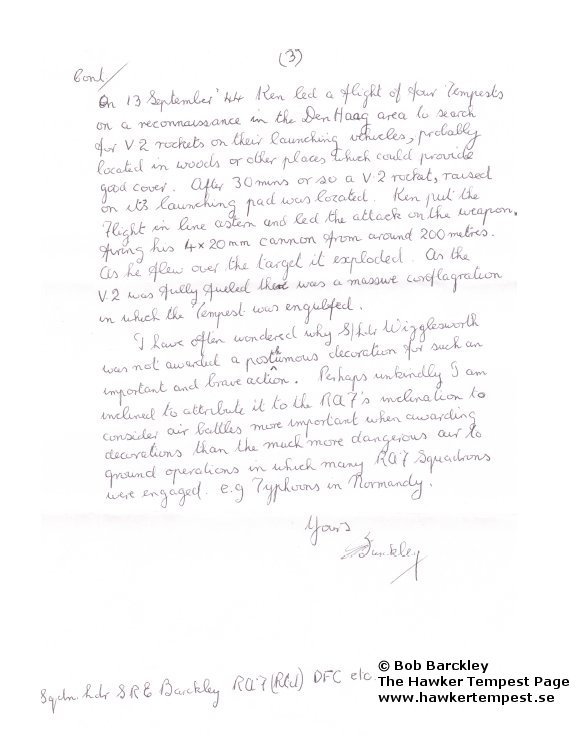 (3)
Cont/
On 13 September '44 Ken led a flight of four Tempests
on a reconnaissance in the Den Haag area to search
for V2 rockets on their launching vehicles, probably
located in woods or other places which could provide
good cover. After 30 mins or so a V2 rocket, raised
on its launching pad was located. Ken put the
Flight in line astern and led the attack on the weapon,
firing his 4x20mm cannon from around 200 metres.
As he flew over the target it exploded. As the
V2 was fully fueled there was a massive conflagration
in which the Tempest was engulfed.
I have often wondered why S/Ldr Wigglesworth
was not awarded a posthumous decoration for such an
important and brave action. Perhaps unkindly I am
inclined to attribute it to the RAF's inclination to
consider air battles more important when awarding
decorations than the much more dangerous air to
ground operations in which many RAF Squadrons
were engaged. e.g Typhoons in Normandy.
Yours
Barckley
Sqdn. Ldr S R E Barckley RAF (Rtd) DFC etc.
© Bob Barckley
The Hawker Tempest Page
www.hawkertempest.se